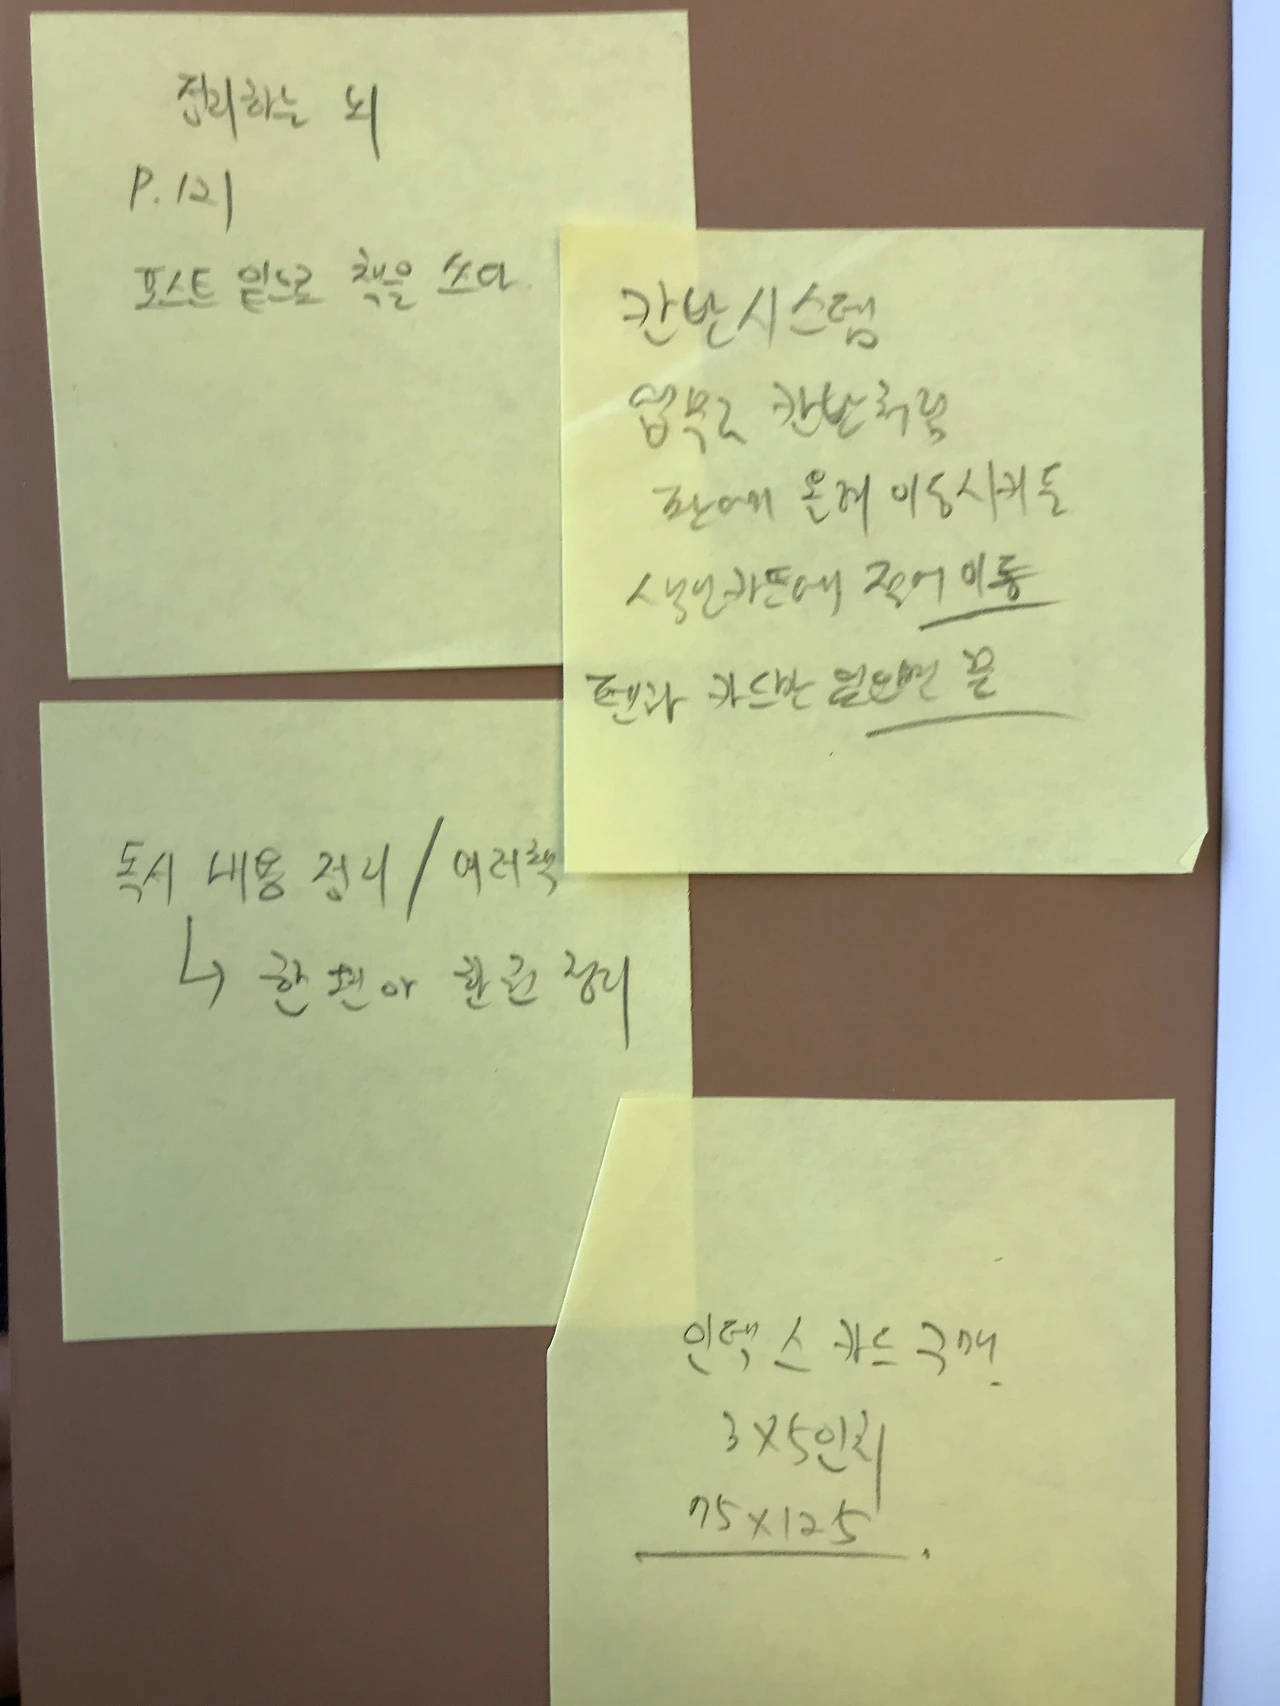 정리하는 뇌
P.121
포스트 잍으로 책을 쓰다.
칸반시스템
업무를 칸반처럼
판에 옮겨 이동시키듯
색인카드에 적어 이동
펜과 카드만 있으면 끝
독서 내용 정리 / 여러책
↳ 한 권 정리
인덱스 카드 구매.
3X5인치
75x125.